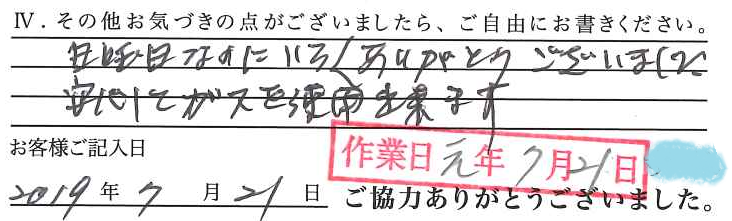 Ⅳ．その他お気づきの点がございましたら、ご自由にお書きください。
日曜日なのにいろ〱ありがとうございました
安心してガスを使用出来ます
お客様ご記入日
作業日 元年 7月21日
2019年 7月 21日 ご協力ありがとうございました。